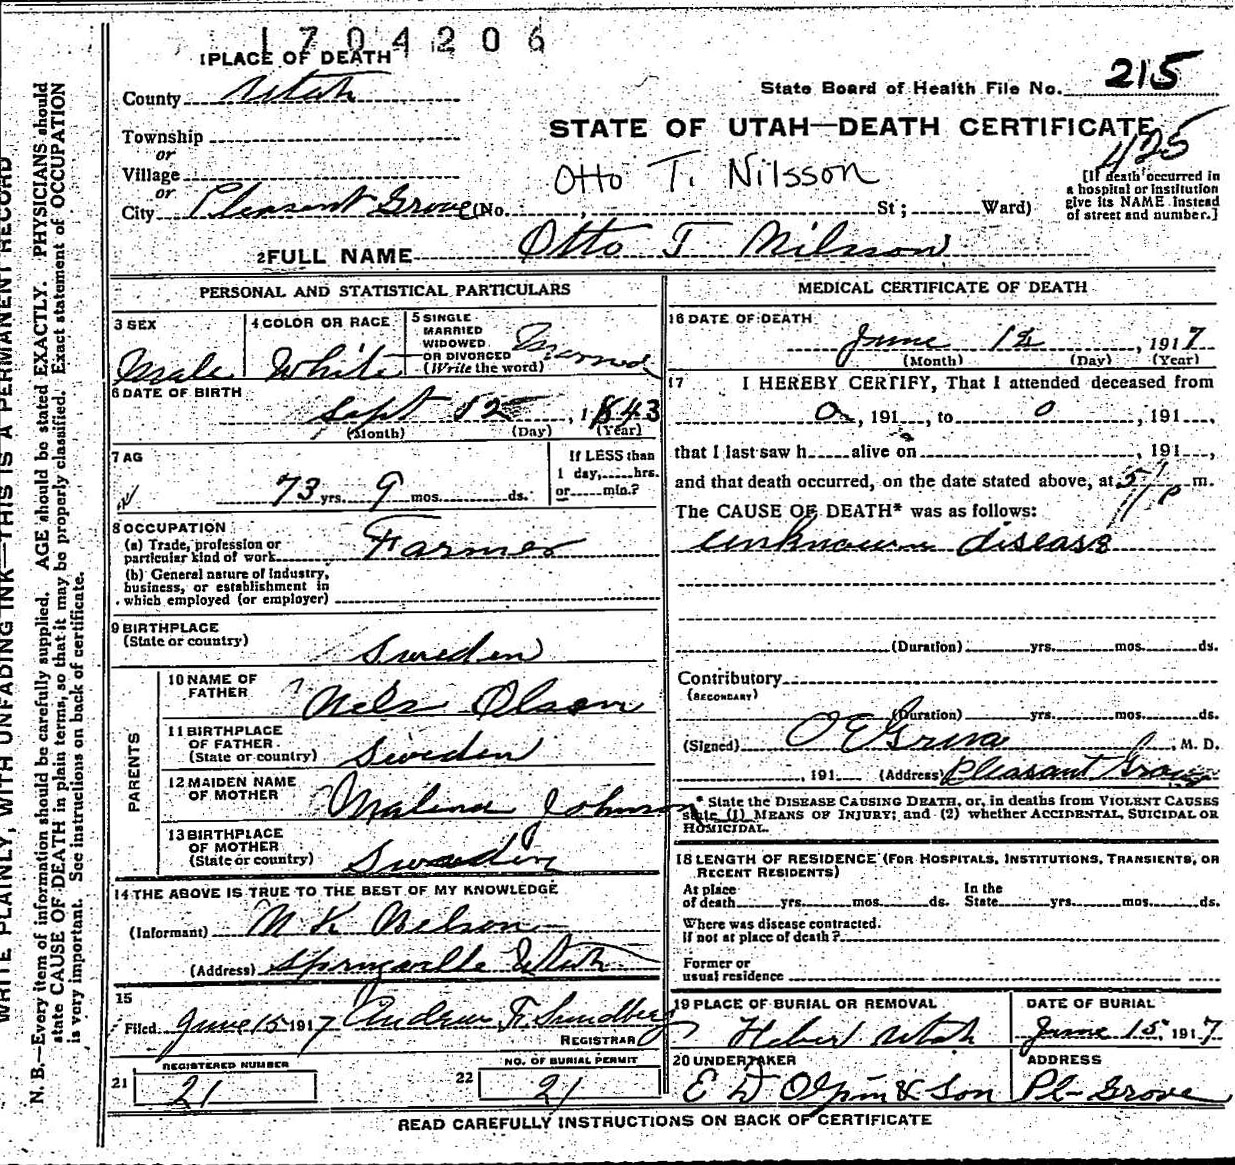 1704206
1 PLACE OF DEATH
County Utah
Township
or
Village
or
City Pleasant Grove (No. , St; Ward)
State Board of Health File No. 215
STATE OF UTAH—DEATH CERTIFICATE
425
[If death occurred in
a hospital or institution
give its NAME instead
of street and number.]
Otto T. Nilsson
2 FULL NAME Otto T Nilsson
PERSONAL AND STATISTICAL PARTICULARS
3 SEX
Male
4 COLOR OR RACE
White
5 SINGLE
MARRIED
WIDOWED
OR DIVORCED
(Write the word) Married
6 DATE OF BIRTH
Sept , 1843
(Month) (Day) (Year)
7 AG
73 yrs. 9 mos. ds.
If LESS than
1 day, hrs.
or min.?
8 OCCUPATION
(a) Trade, profession or
particular kind of work Farmer
(b) General nature of industry,
business, or establishment in
which employed (or employer)
9 BIRTHPLACE
(State or country) Sweden
PARENTS
10 NAME OF
FATHER Nels Olson
11 BIRTHPLACE
OF FATHER
(State or country) Sweden
12 MAIDEN NAME
OF MOTHER Malina Johnson
13 BIRTHPLACE
OF MOTHER
(State or country) Sweden
14 THE ABOVE IS TRUE TO THE BEST OF MY KNOWLEDGE
(Informant) M K Nelson
(Address) Springville Utah
15
Filed June 15 1917 Andrew F. Sundberg
REGISTRAR
REGISTERED NUMBER
21 21
NO. OF BURIAL PERMIT
22 21
MEDICAL CERTIFICATE OF DEATH
16 DATE OF DEATH
June 12, 1917
(Month) (Day) (Year)
17 I HEREBY CERTIFY, That I attended deceased from
0, 191 , to 0 , 191 ,
that I last saw h alive on , 191 ,
and that death occurred, on the date stated above, at 5 P m.
The CAUSE OF DEATH* was as follows:
unknown disease
(Duration) yrs. mos. ds.
Contributory
(SECONDARY)
(Duration) yrs. mos. ds.
(Signed) O E Grua , M. D.
, 191 (Address) Pleasant Grove
* State the DISEASE CAUSING DEATH, or, in deaths from VIOLENT CAUSES
state (1) MEANS OF INJURY; and (2) whether ACCIDENTAL, SUICIDAL OR
HOMICIDAL.
18 LENGTH OF RESIDENCE (FOR HOSPITALS, INSTITUTIONS, TRANSIENTS, OR
RECENT RESIDENTS)
At place
of death yrs. mos. ds. In the
State yrs. mos. ds.
Where was disease contracted.
if not at place of death?
Former or
usual residence
19 PLACE OF BURIAL OR REMOVAL
Heber Utah
DATE OF BURIAL
June 15, 1917
20 UNDERTAKER
E D Olpin & Son
ADDRESS
Pl-Grove
READ CAREFULLY INSTRUCTIONS ON BACK OF CERTIFICATE
WRITE PLAINLY, WITH UNFADING INK—THIS IS A PERMANENT RECORD
N. B.—Every item of information should be carefully supplied. AGE should be stated EXACTLY. PHYSICIANS should
state CAUSE OF DEATH in plain terms, so that it may be properly classified. Exact statement of OCCUPATION
is very important. See instructions on back of certificate.